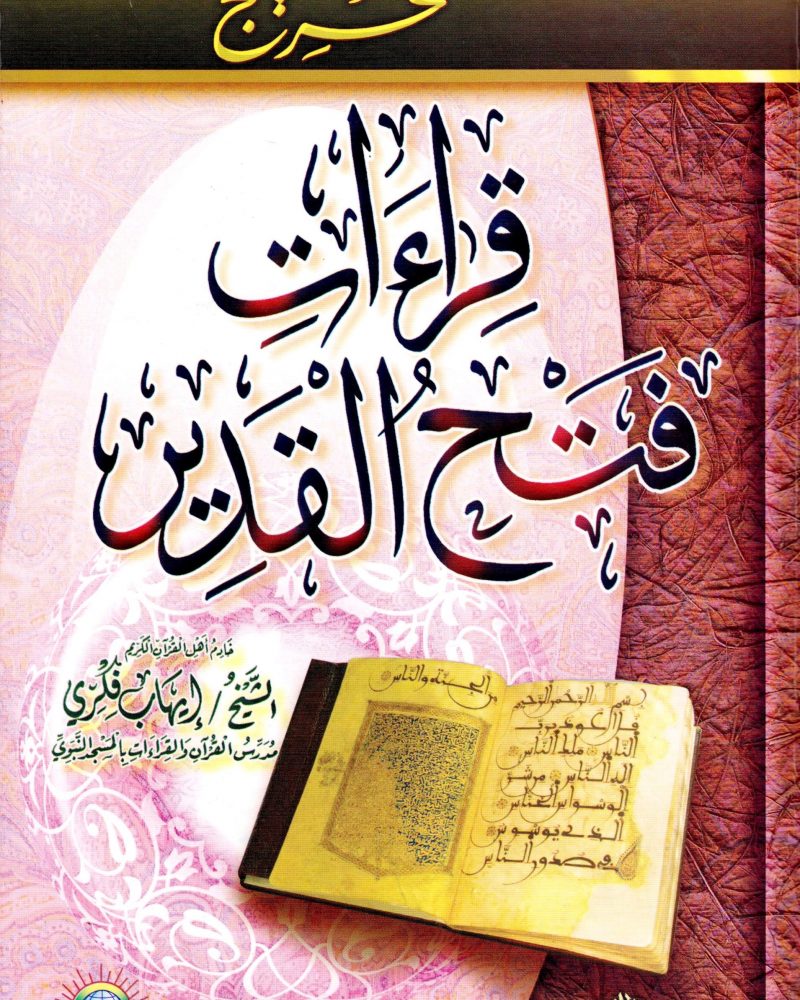 تخريج
قِرَاءَاتِ
فَتْحُ الْقَدِيرِ
خَادِمُ أَهْلِ الْقُرْآنِ الْكَرِيمِ
الشَّيْخُ / إِيهَابْ فِكْرِي
مُدَرِّسُ الْقُرْآنِ وَالْقِرَاءَاتِ بِالْمَسْجِدِ النَّبَوِيِّ
بسم الله الرحمن الرحيم
قل اعوذ برب
الناس ملك الناس
اله الناس من شر
الوسواس الخناس
الذي يوسوس
في صدور الناس
من الجنة والناس